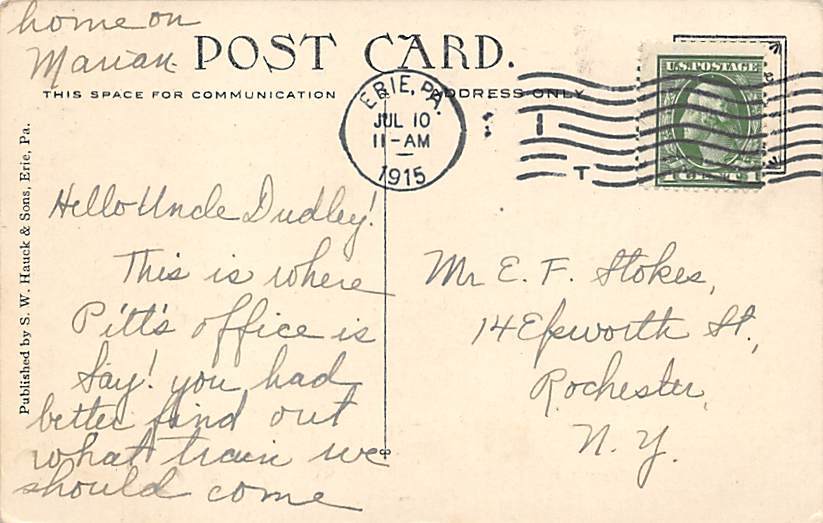 home on
Marian.
POST CARD.
THIS SPACE FOR COMMUNICATION
ADDRESS ONLY
ERIE, PA.
JUL 10
11-AM
1915
U.S. POSTAGE
Published by S. W. Hauck & Sons, Erie, Pa.
Hello Uncle Dudley!
This is where
Pitt's office is
Say! you had
better find out
what train we
should come
Mr E. F. Stokes,
14 Epworth St.,
Rochester,
N. Y.